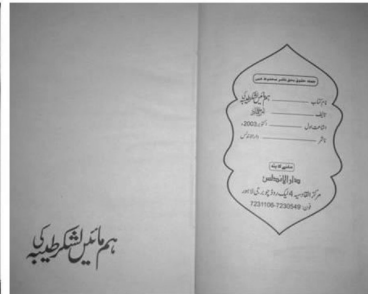 ہم مائیں لشکر طیبہ کی
جملہ حقوق بحق ناشر محفوظ ہیں
نام کتاب ہم مائیں لشکر طیبہ کی
تالیف
اشاعت اول اکتوبر 2003ء
ناشر دارالاندلس
ملنے کا پتہ
دارالاندلس
مرکز القادسیہ 4 لیک روڈ چوبرجی لاہور
فون: 7230549-7231106